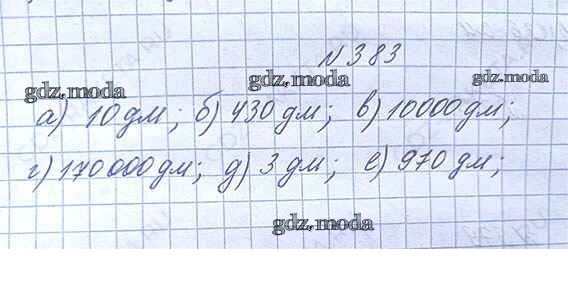 №383
gdz.moda gdz.moda gdz.moda
а) 10 дм; б) 430 дм; в) 10000 дм;
г) 170 000 дм; д) 3 дм; е) 970 дм;
gdz.moda